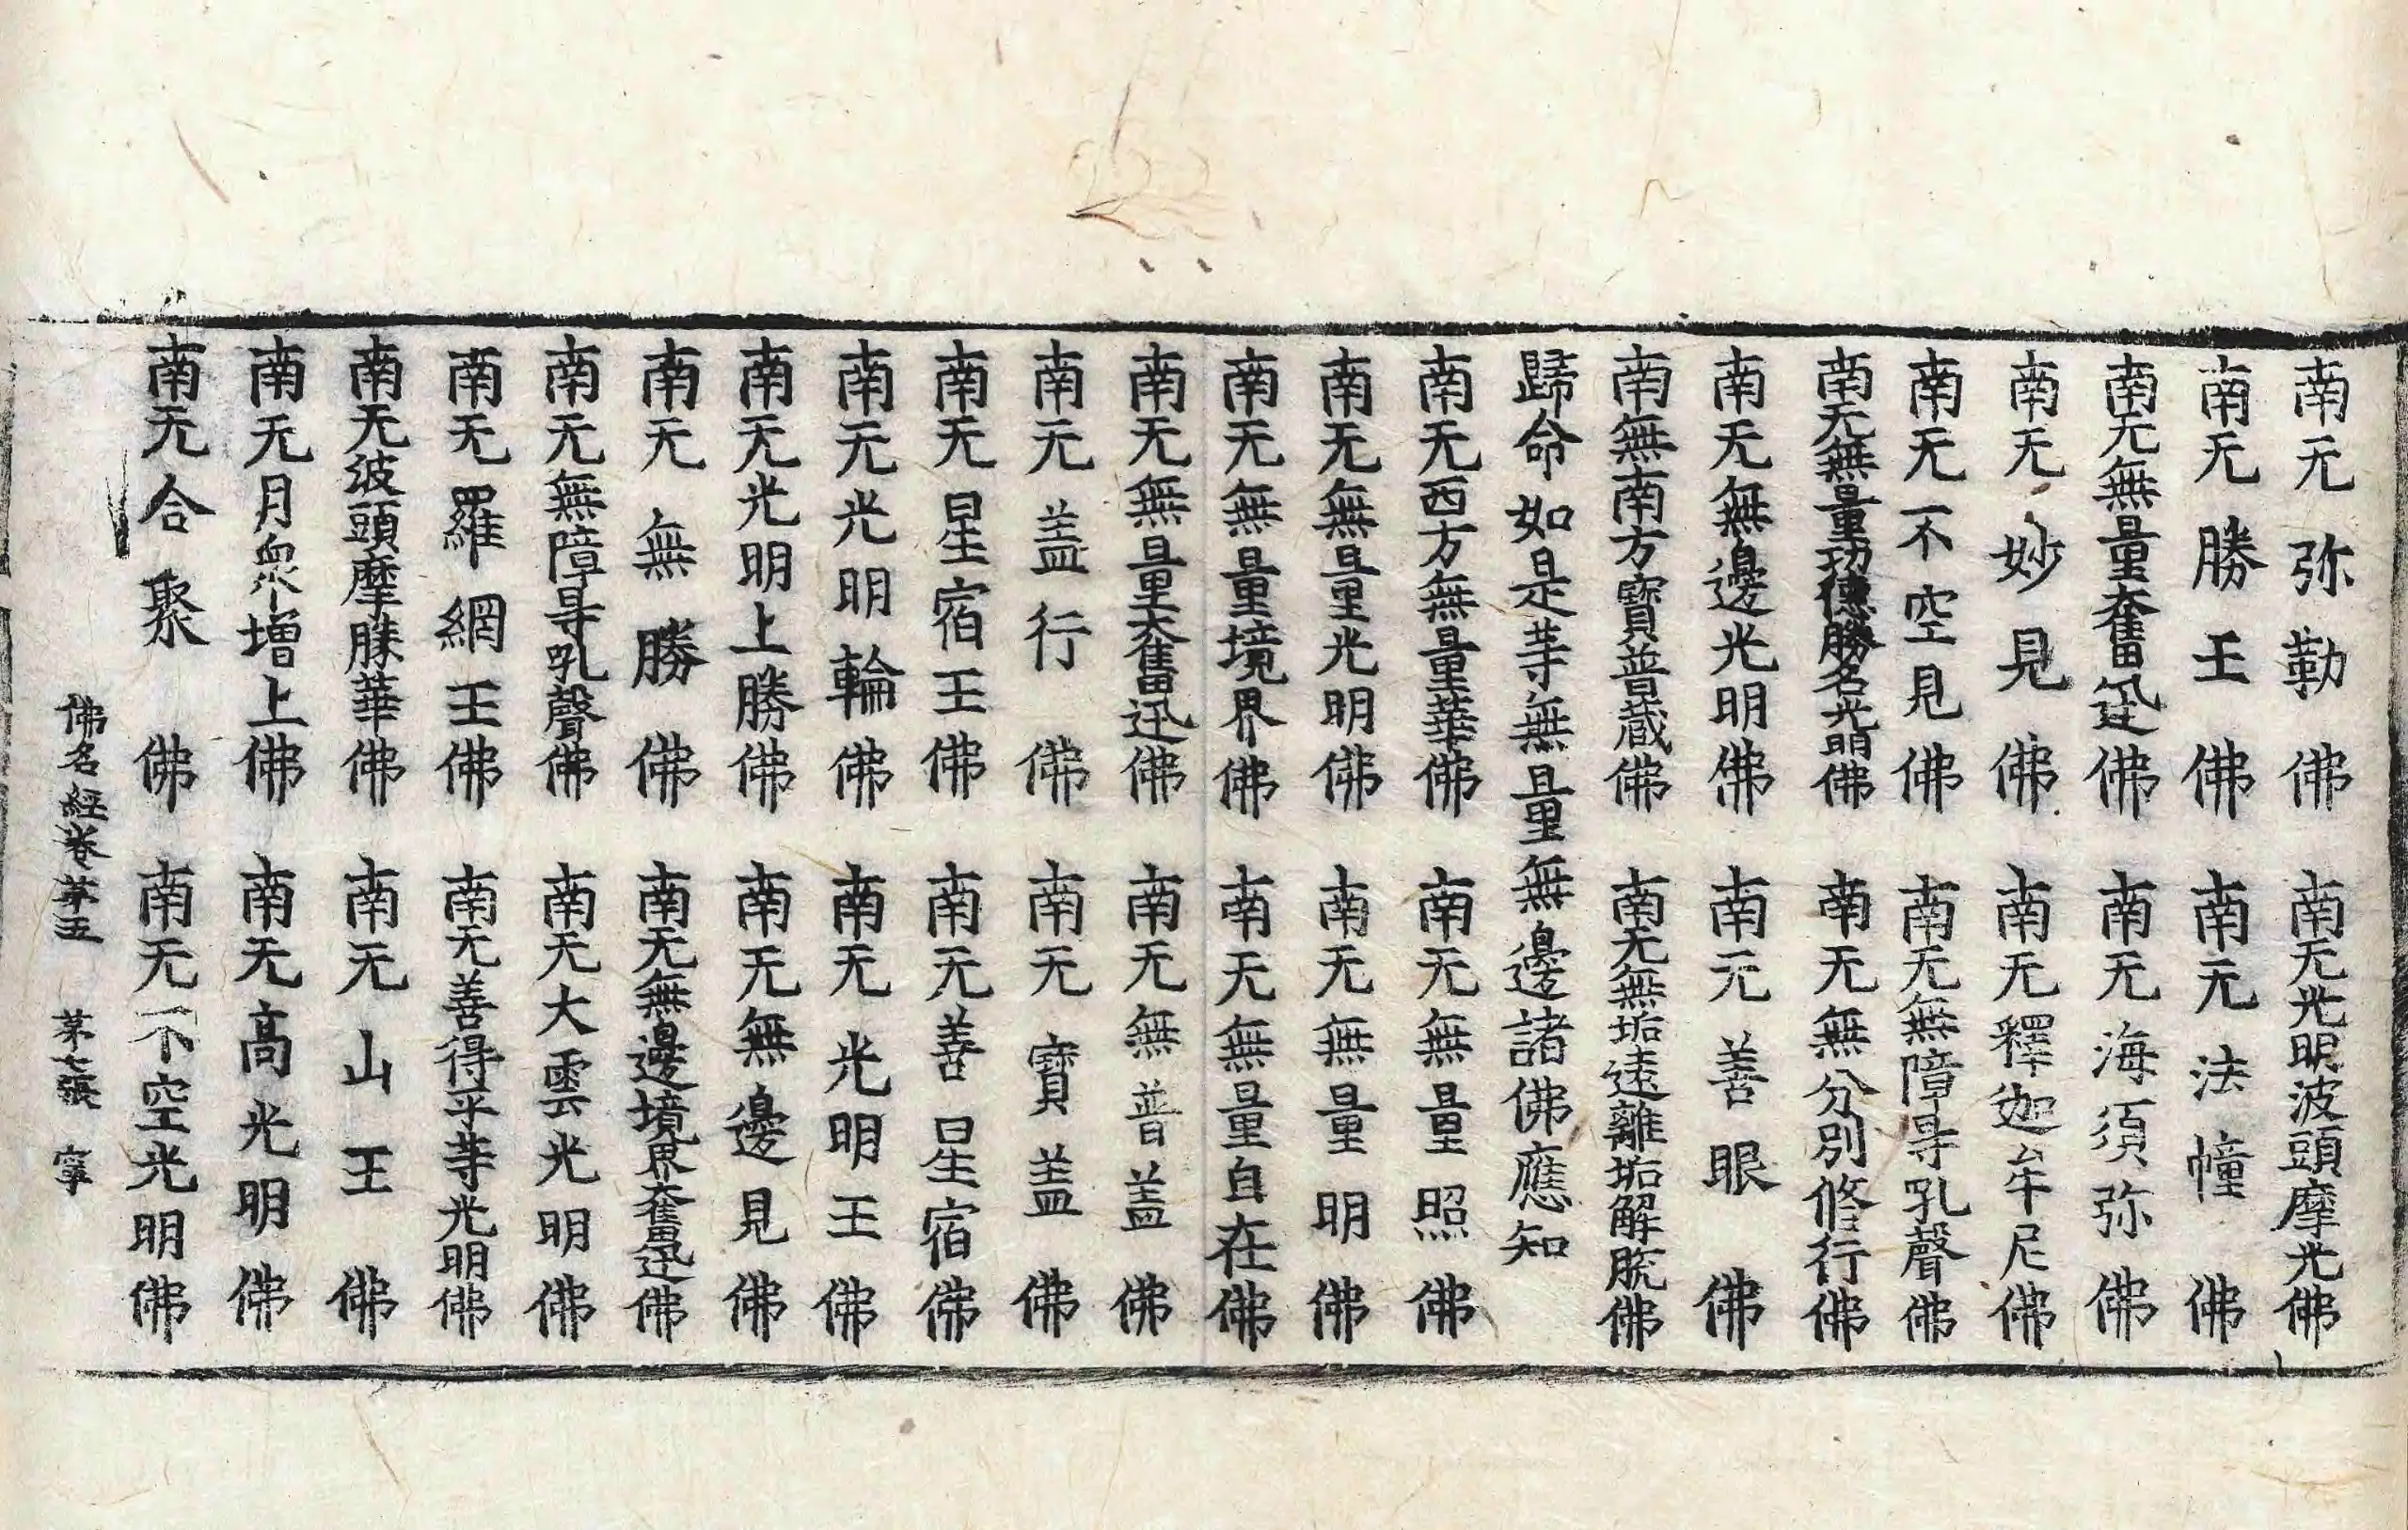 南无弥勒佛　南无光明波頭摩光佛
南无勝王佛　南无法幢佛
南无無量奮迅佛　南无海須弥佛
南无妙見佛　南无釋迦牟尼佛
南无不空見佛　南无無障㝵吼聲佛
南无無量功德勝名光明佛　南无無分別修行佛
南无無邊光明佛　南无善眼佛
南無南方寶普蔵佛　南无無垢遠離垢解脫佛
歸命如是䓁無量無邊諸佛應知
南无西方無量華佛　南无無量照佛
南无無量光明佛　南无無量明佛
南无無量境界佛　南无無量自在佛
南无無量奮迅佛　南无無普盖佛
南无盖行佛　南无寶盖佛
南无星宿王佛　南无善星宿佛
南无光明輪佛　南无光明王佛
南无光明上勝佛　南无無邊見佛
南无無勝佛　南无無邊境界奮迅佛
南无無障㝵吼聲佛　南无大雲光明佛
南无羅網王佛　南无善得平䓁光明佛
南无波頭摩勝華佛　南无山王佛
南无月衆增上佛　南无高光明佛
南无合聚佛　南无不空光明佛
佛名經卷苐五　苐七張　寧